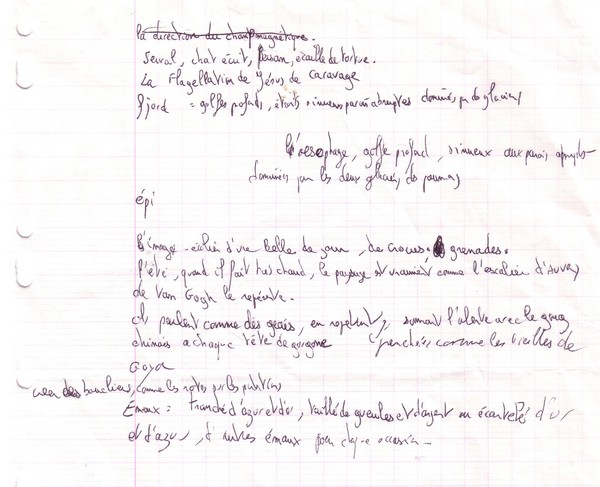 la direction du champ magnétique.
serval, chat écrit, faisan, écaille de tortue.
La Flagellation de Jésus de caravage
fjord = golfes profonds, étroits sinueux parois abruptes dominés par des glaciers
l'oesophage, golfe profond, sinueux aux parois abruptes
dominées par les deux glaciers des poumons
épi
L'image - d'une belle de jour, de crocus. grenades.
l'été, quand il fait très chaud, le paysage est comme l'escalier d'Auvers
de Van Gogh le représente.
Ils parlent comme des geais, en répétant, sonnant l'alerte avec le
à chaque tête de gorgone penchées comme les vieilles de
Goya
boucliers, comme les notes sur les partitions
Émaux : tranché d'azur et d'or, taillé de gueules et d'argent ou écartelé d'or
et d'azur, d'autres émaux pour chaque occasion -